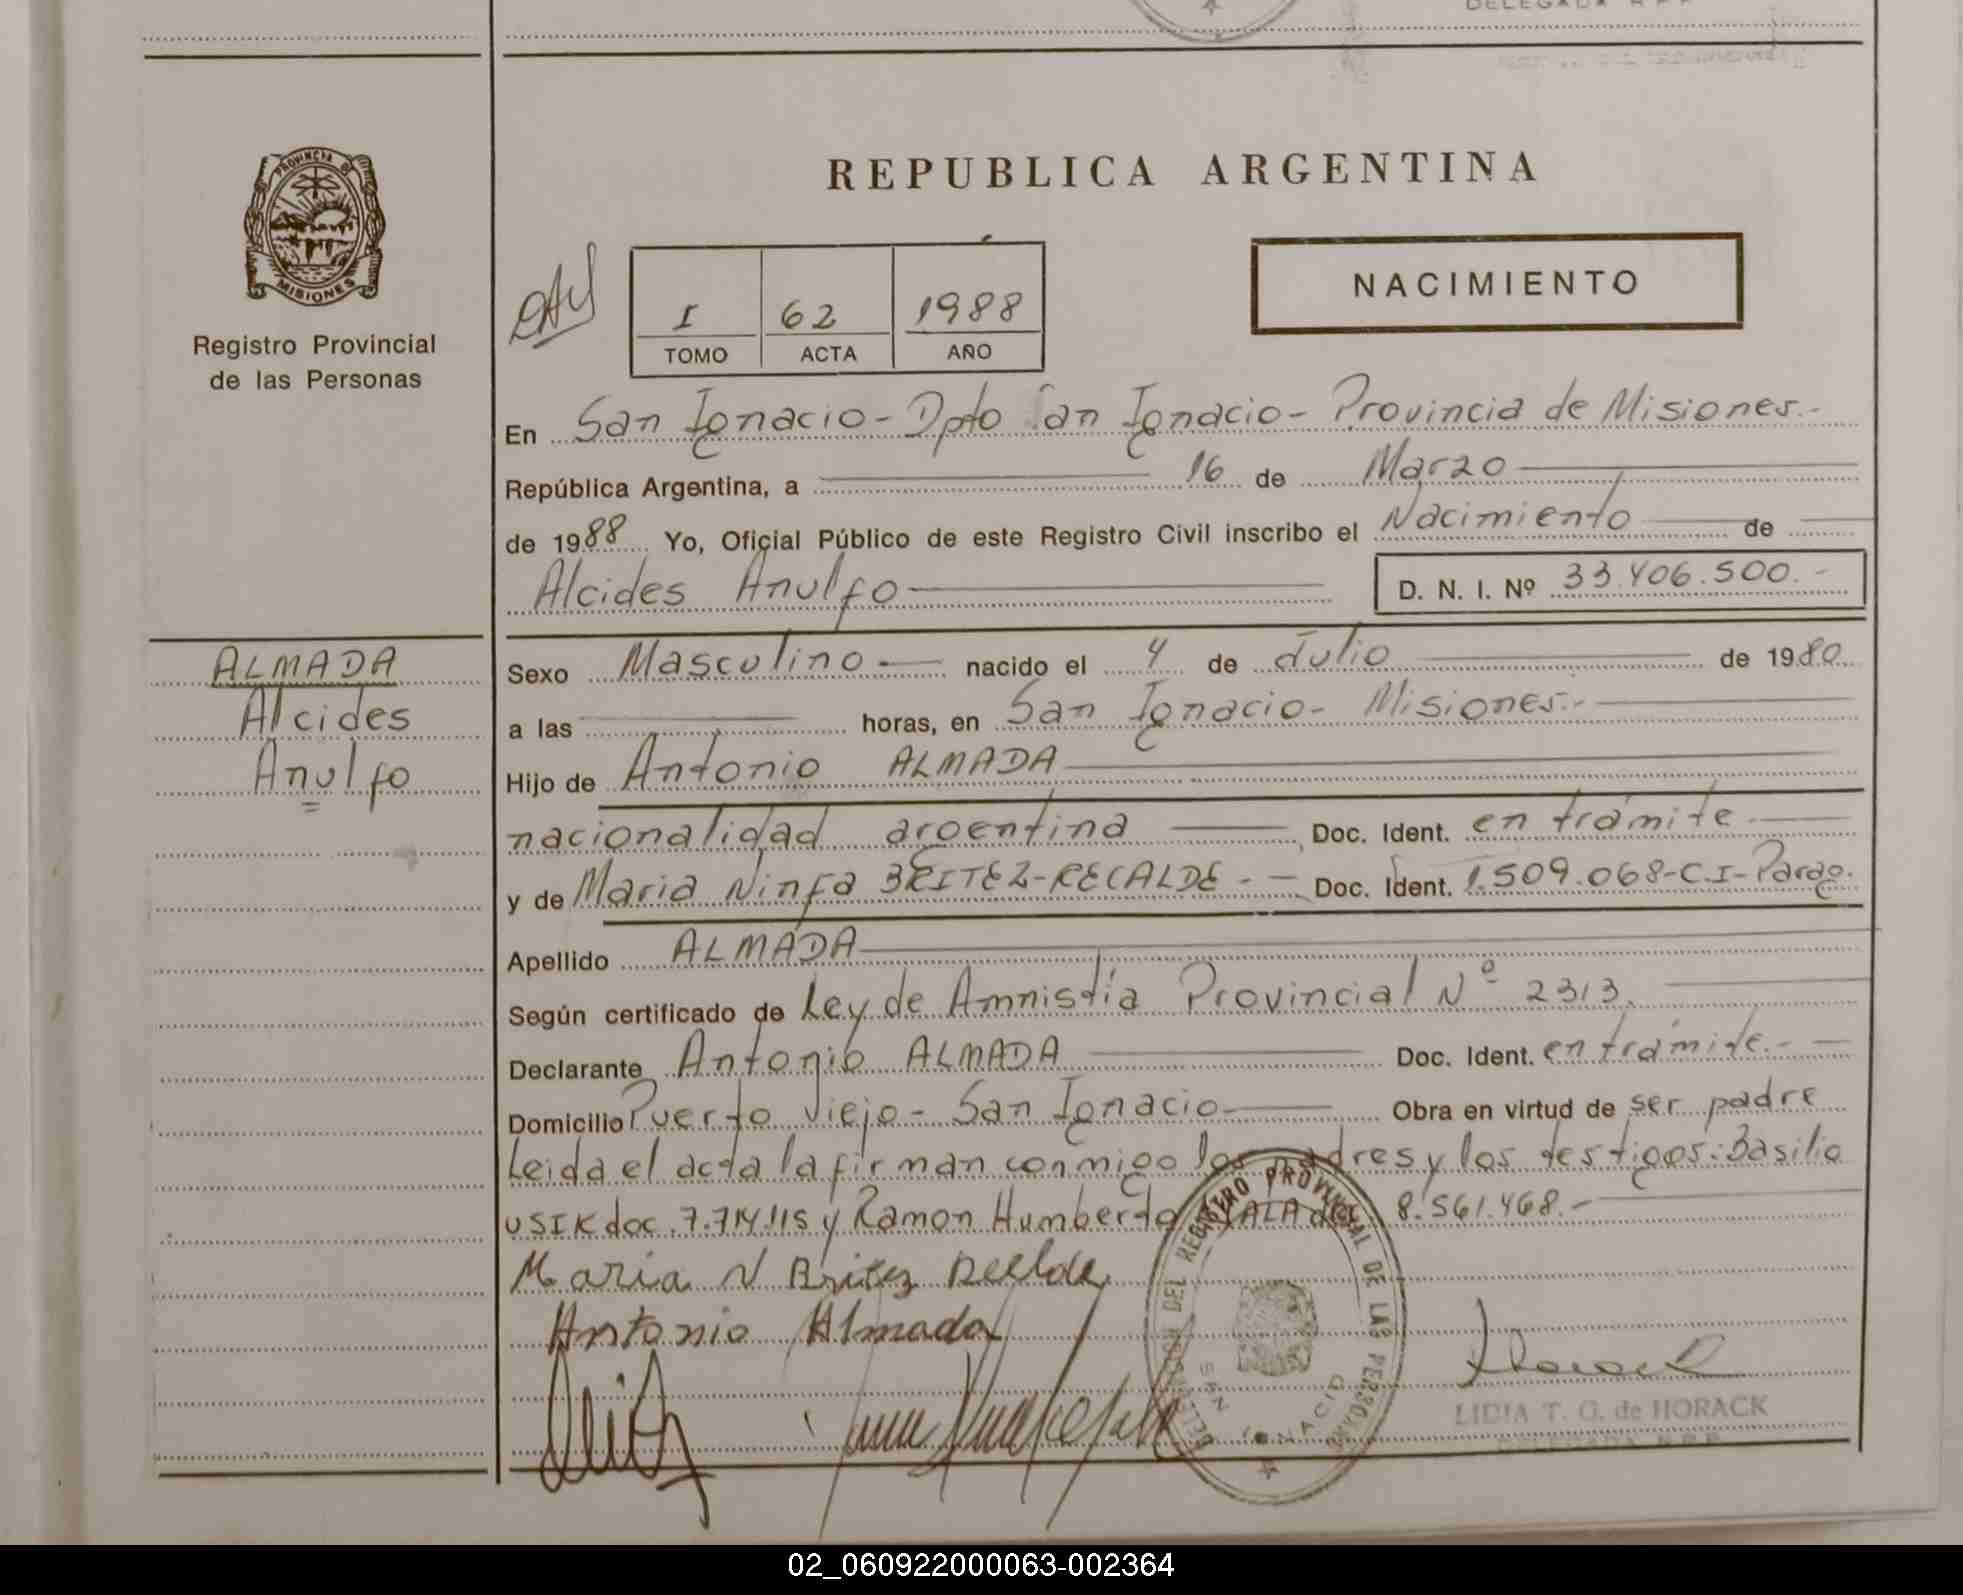 DELEGADA R.P.P.
REPUBLICA ARGENTINA
PROVINCIA DE
MISIONES
Registro Provincial
de las Personas
I 62 1988
TOMO ACTA AÑO
NACIMIENTO
En San Ignacio - Dpto San Ignacio - Provincia de Misiones.-
República Argentina, a 16 de Marzo
de 1988 Yo, Oficial Público de este Registro Civil inscribo el Nacimiento de
Alcides Anulfo
D. N. I. Nº 33.406.500.-
ALMADA
Alcides
Anulfo
Sexo Masculino nacido el 4 de Julio de 1980
a las horas, en San Ignacio - Misiones.-
Hijo de Antonio ALMADA
nacionalidad argentina Doc. Ident. en trámite
y de Maria Ninfa BRITEZ-RECALDE - Doc. Ident. 1.509.068-C.I-Parag.
Apellido ALMADA
Según certificado de Ley de Amnistía Provincial Nº 2313.
Declarante Antonio ALMADA Doc. Ident. en trámite.-
Domicilio Puerto Viejo - San Ignacio Obra en virtud de ser padre
Leida el acta la firman conmigo los padres y los testigos: Basilio
USIK doc. 7.714.115 y Ramon Humberto 8.561.468.-
Maria N Britez
Antonio Almada
DELEGACION DEL REGISTRO PROVINCIAL DE LAS PERSONAS
SAN IGNACIO
Horack
LIDIA T. G. de HORACK
DELEGADA R.P.P.
02_060922000063-002364